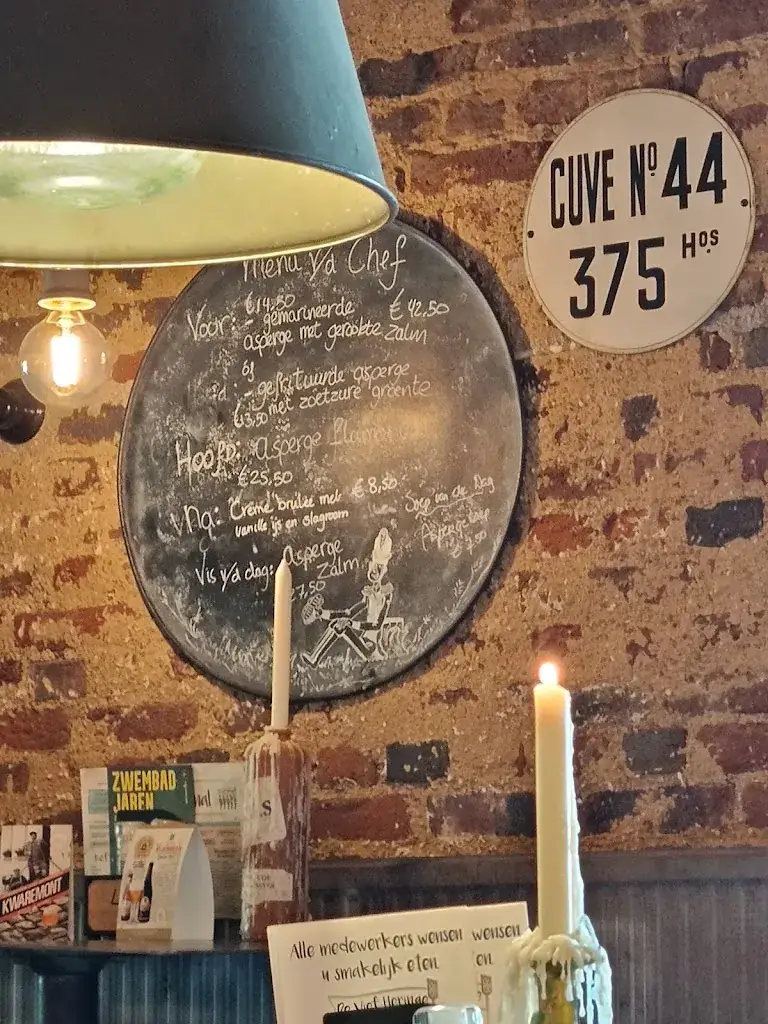 CUVE Nº 44
375 Hos
Menu v/d Chef
€14,50
Voor: - gemarineerde € 42,50
asperge met gerookte zalm
of
- gefrituurde asperge
€13,50 met zoetzure groente
Hoofd: asperge
€25,50
Creme brulee met € 8,50
vanille ijs en slagroom
Soep van de Dag
Asperge soep
€ 7,50
Vis v/d dag: Asperge
Zalm
7,50
ZWEMBAD
JAREN
KWAREMONT
Alle medewerkers wensen wensen
u smakelijk eten. en.